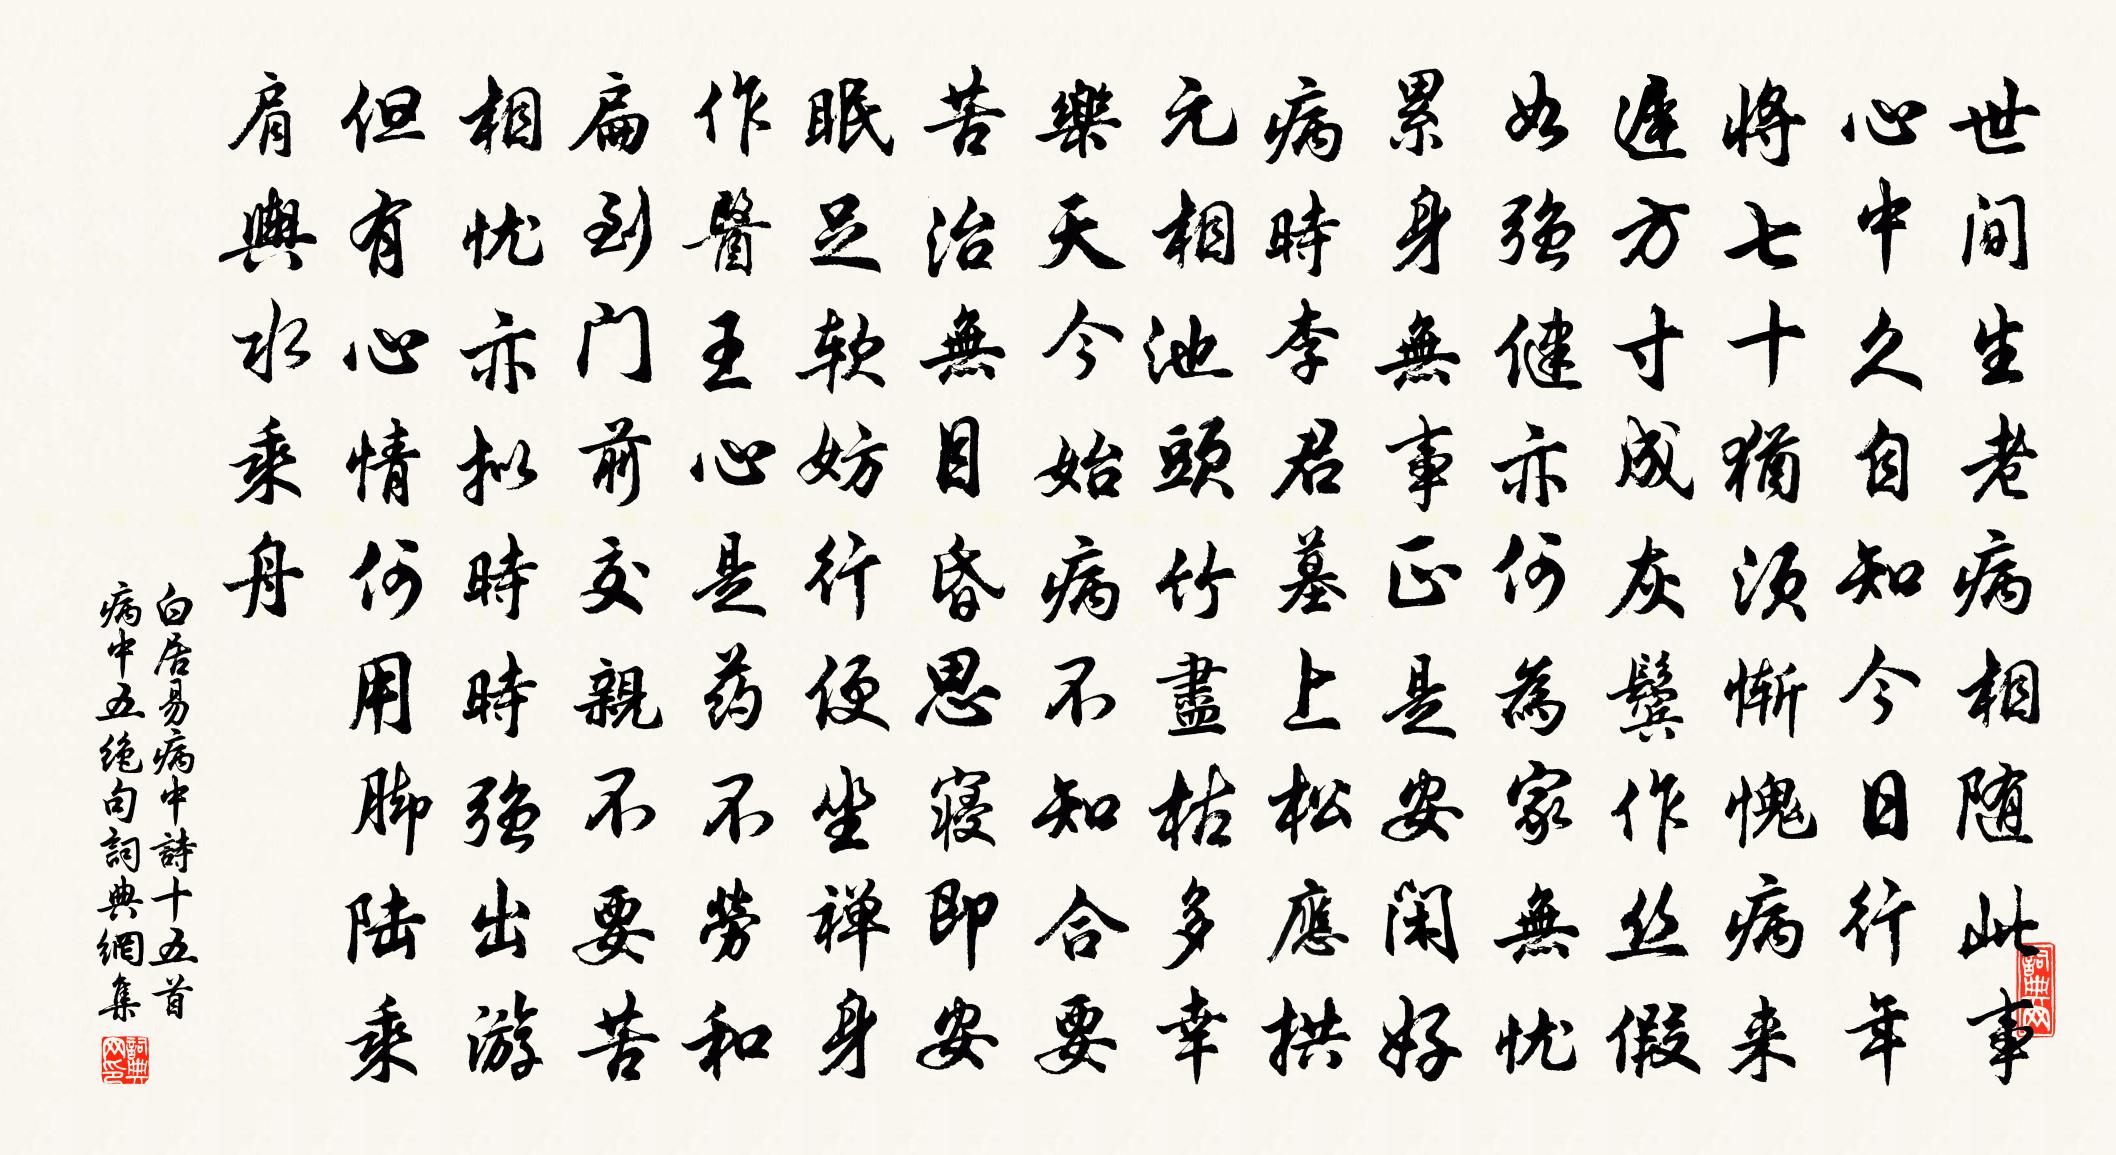 世间生老病相随此事
心中久自知今日行年
将七十猶须慚愧病来
遲方寸成灰鬓作丝假
如强健亦何為家無忧
累身無事正是安闲好
病時李君墓上松應拱
元相池頭竹盡枯多幸
樂天今始病不知合要
苦治無目昏思寝即安
眠足软妨行便坐禅身
作醫王心是药不劳和
扁到门前交親不要苦
相忧亦拟時時强出游
但有心情何用脚陆乘
肩輿水乘舟
白居易病中詩十五首
病中五绝句詞典網集
詞典网
詞典网印